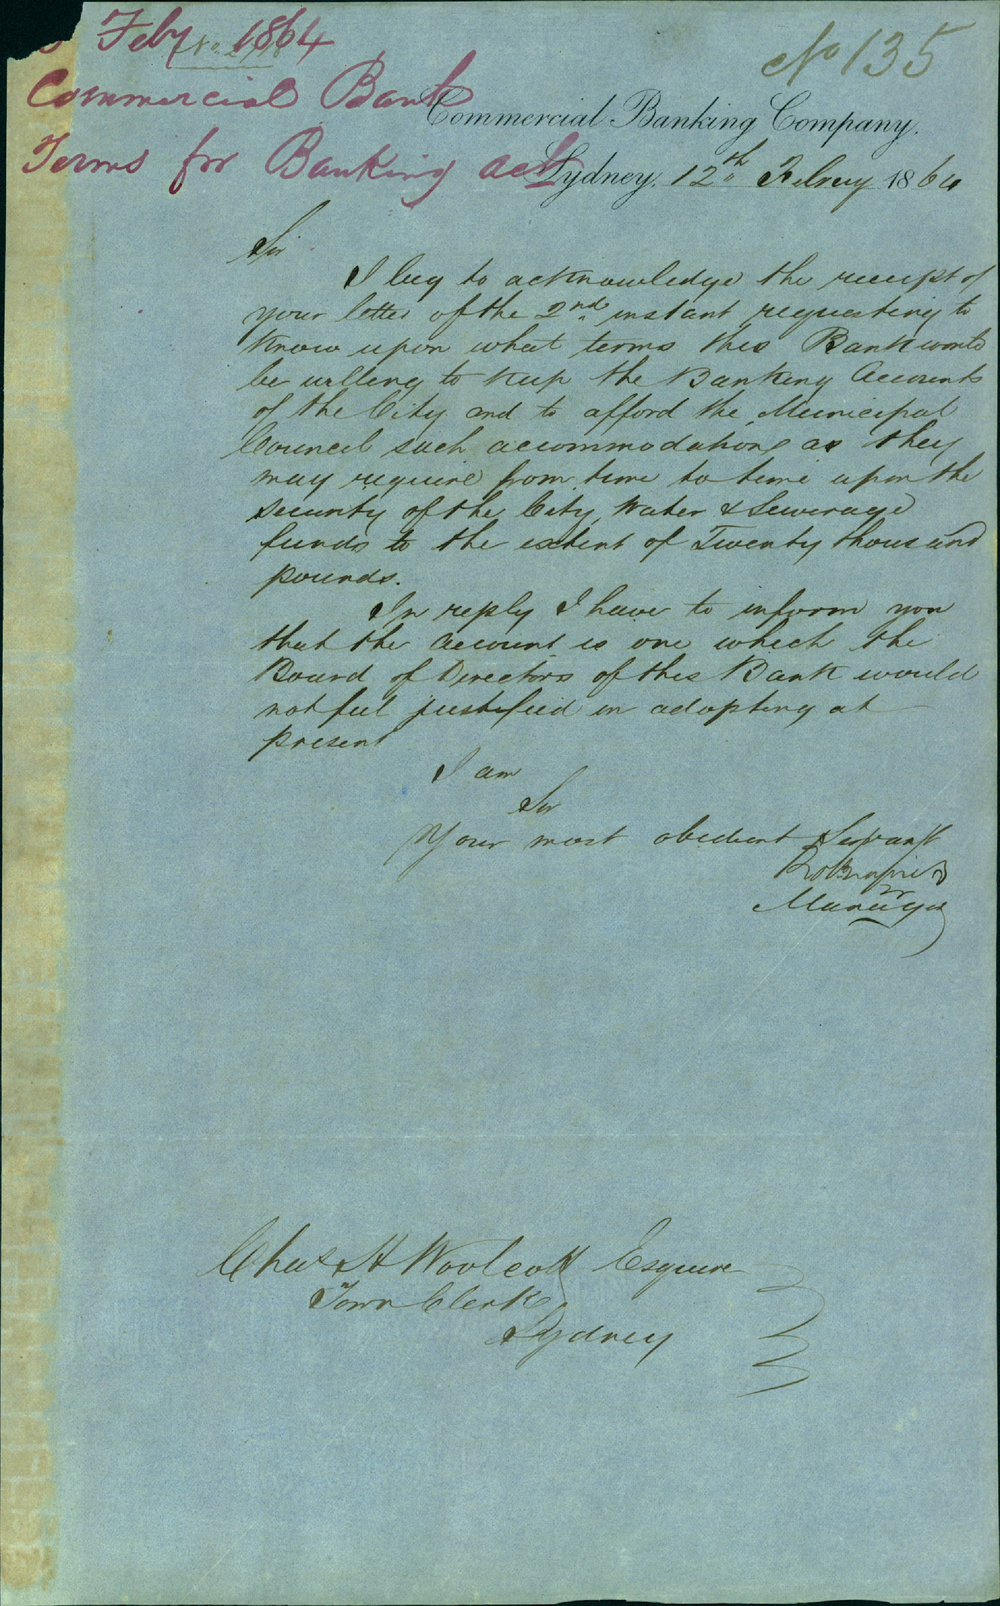 Feby 1864
No 135
Commercial Bank
Commercial Banking Company.
Terms for Banking act
Sydney, 12th Febury 1864
Sir
I beg to acknowledge the receipt of
your letter of the 2nd instant requesting to
know upon what terms this Bank would
be willing to keep the Banking Accounts
of the City and to afford the Municipal
Council such accommodation as they
may require from time to time upon the
security of the City, Water & Sewerage
funds to the extent of Twenty thousand
pounds.
In reply I have to inform you
that the account is one which the
Board of Directors of this Bank would
not feel justified in adopting at
present
I am
Sir
Your most obedient Servant
Manager
Chas H Woolcott Esquire
Town Clerk
Sydney